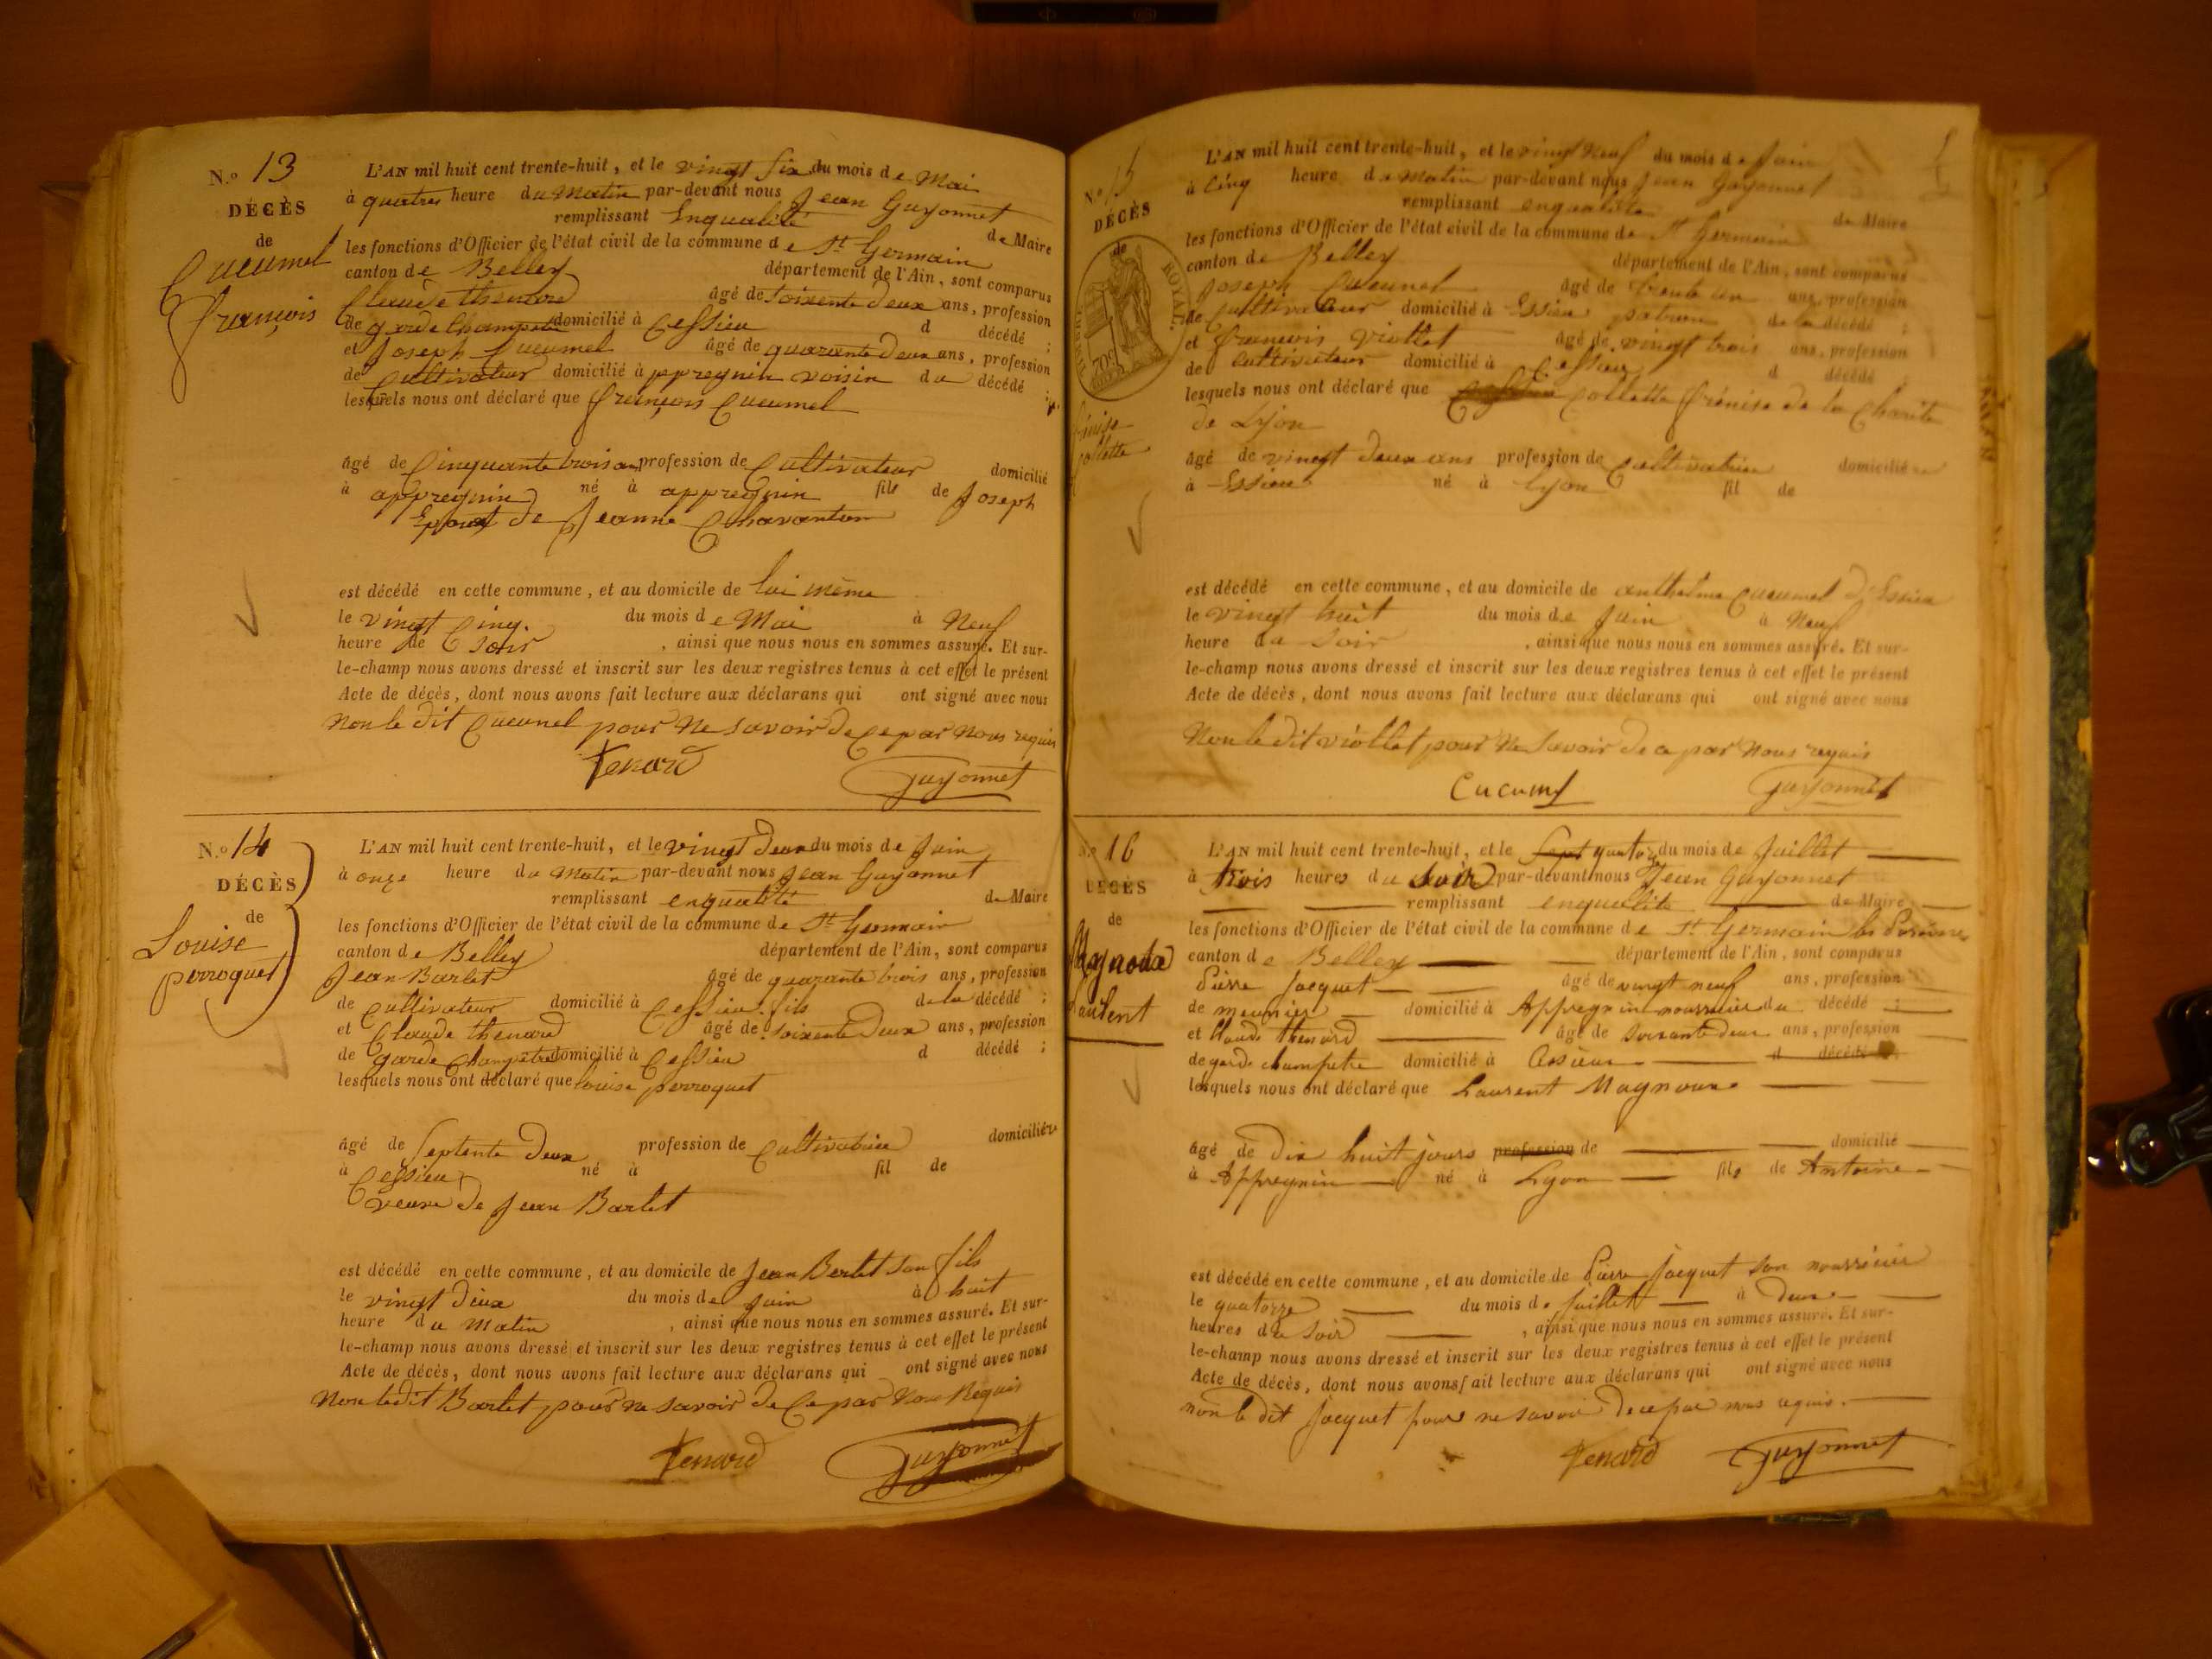 N.º 13
DÉCÈS
de
Cucumel
françois
L'AN mil huit cent trente-huit, et le vingt six du mois de Mai
à quatres heure du Matin par-devant nous Jean Guyonnet
remplissant Enqualité de Maire
les fonctions d'Officier de l'état civil de la commune de St Germain
canton de Belley département de l'Ain, sont comparus
Claude thenard âgé de soixente deux ans, profession
de garde Champetre domicilié à Cessieu d décédé ;
et Joseph Cucumel âgé de quarante Deux ans, profession
de Cultivateur domicilié à appregnin voisin du décédé ;
lesquels nous ont déclaré que françois Cucumel
âgé de Cinquante trois ans, profession de Cultivateur domicilié
à appregnin né à appregnin fils de Joseph
Epoux de Jeanne Chavanton
est décédé en cette commune, et au domicile de lui même
le vingt Cinq. du mois de Mai à Neuf
heure de Soir , ainsi que nous nous en sommes assuré. Et sur-
le-champ nous avons dressé et inscrit sur les deux registres tenus à cet effet le présent
Acte de décès, dont nous avons fait lecture aux déclarans qui ont signé avec nous
Non le dit Cucumel pour Ne savoir de Ce par Nous requis
Tenard
Guyonnet
N.º 14
DÉCÈS
de
Louise
perroquet
L'AN mil huit cent trente-huit, et le vingt deux du mois de Juin
à onze heure du Matin par-devant nous Jean Guyonnet
remplissant enqualité de Maire
les fonctions d'Officier de l'état civil de la commune de St Germain
canton de Belley département de l'Ain, sont comparus
Jean Barlet âgé de quarante trois ans, profession
de Cultivateur domicilié à Cessieu. fils de la décédé ;
et Claude thenard âgé de soixente Deux ans, profession
de garde Champêtre domicilié à Cessieu d décédé ;
lesquels nous ont déclaré que louise perroquet
âgé de Septente Deux profession de Cultivatrice domicilié
à Cessieu né à fil de
veuve de Jean Barlet
est décédé en cette commune, et au domicile de Jean Berlet son fils
le vingt deux du mois de Juin à huit
heure du Matin , ainsi que nous nous en sommes assuré. Et sur-
le-champ nous avons dressé et inscrit sur les deux registres tenus à cet effet le présent
Acte de décès, dont nous avons fait lecture aux déclarans qui ont signé avec nous
Non ledit Barlet pour ne savoir de Ce par Nous Requis
Tenard
Guyonnet
N.º 15
DÉCÈS
de
ROYAL.
frénise
Collette
L'AN mil huit cent trente-huit, et le vingt Neuf du mois de Juin
à Cinq heure du Matin par-devant nous Jean Guyonnet
remplissant enqualité de Maire
les fonctions d'Officier de l'état civil de la commune de St Germain
canton de Belley département de l'Ain, sont comparus
Joseph Cucumel âgé de trente un ans, profession
de Cultivateur domicilié à Essieu patron de la décédé ;
et françois Viollet âgé de vingt trois ans, profession
de Cultivateur domicilié à Cessieu d décédé ;
lesquels nous ont déclaré que Collette frénise de la Charité
de Lyon
âgé de vingt deux ans profession de Cultivatrice domicilié
à Essieu né à Lyon fil de
est décédé en cette commune, et au domicile de anthelme Cucumel d'Essieu
le vingt huit du mois de Juin à Neuf
heure du Soir , ainsi que nous nous en sommes assuré. Et sur-
le-champ nous avons dressé et inscrit sur les deux registres tenus à cet effet le présent
Acte de décès, dont nous avons fait lecture aux déclarans qui ont signé avec nous
Non le dit viollet pour Ne Savoir de ce par Nous requis
Cucumel
Guyonnet
N.º 16
DÉCÈS
de
Magnoux
Laurent
L'AN mil huit cent trente-huit, et le Sept quatorze du mois de Juillet
à trois heures du Soir par-devant nous Jean Guyonnet
remplissant enqualité de Maire
les fonctions d'Officier de l'état civil de la commune de St Germain les Paroisses
canton de Belley département de l'Ain, sont comparus
Pierre Jacquet âgé de vingt neuf ans, profession
de meunier domicilié à Appregnin nourricier du décédé ;
et Claude thenard âgé de soixante deux ans, profession
de garde champetre domicilié à Essieux d décédé
lesquels nous ont déclaré que Laurent Magnoux
âgé de Dix huit jours profession de domicilié
à Appregnin né à Lyon fils de Antoine
est décédé en cette commune, et au domicile de Pierre Jacquet son nourricier
le quatorze du mois de Juillet à deux
heures du Soir , ainsi que nous nous en sommes assuré. Et sur-
le-champ nous avons dressé et inscrit sur les deux registres tenus à cet effet le présent
Acte de décès, dont nous avons fait lecture aux déclarans qui ont signé avec nous
non le dit Jacquet pour ne savoir de ce par nous requis.
Tenard
Guyonnet